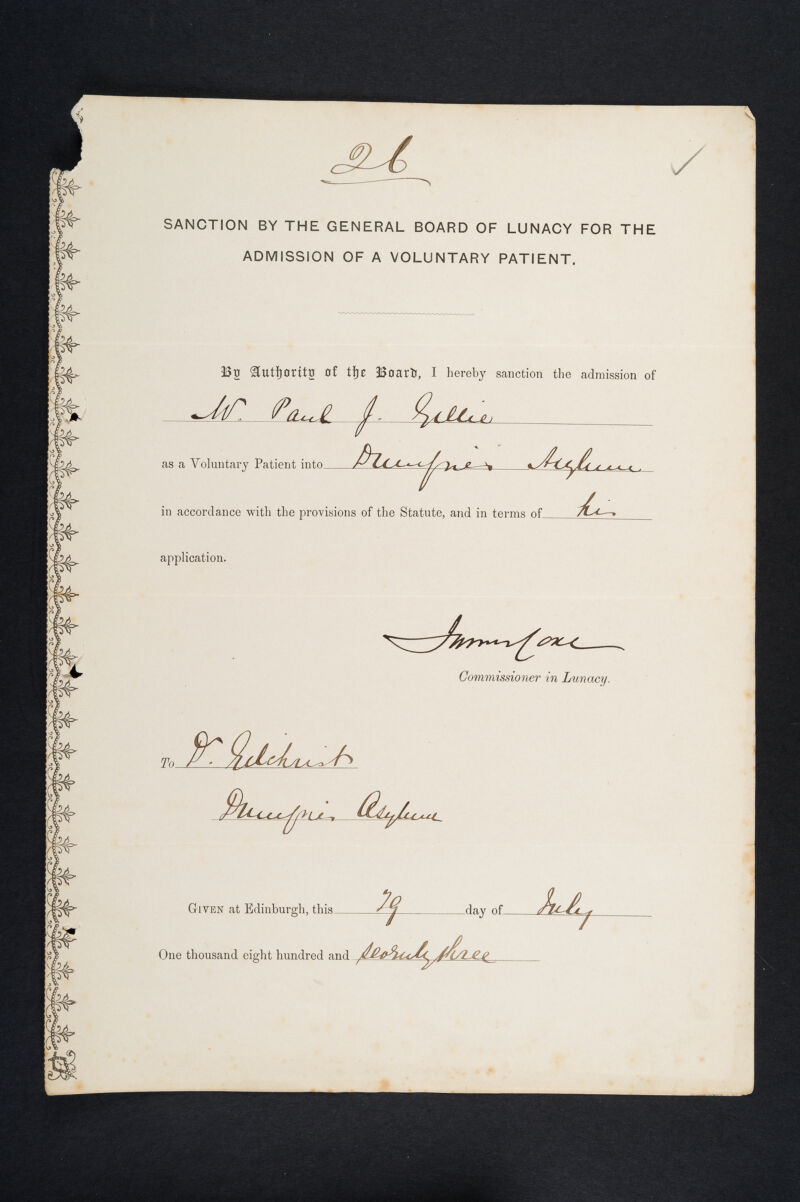 26
SANCTION BY THE GENERAL BOARD OF LUNACY FOR THE
ADMISSION OF A VOLUNTARY PATIENT.
By Authority of the Board, I hereby sanction the admission of
Mr. Paul J. Gillie
as a Voluntary Patient into Dumfries Asylum
in accordance with the provisions of the Statute, and in terms of his
application.
James Coxe
Commissioner in Lunacy.
To Dr. Gilchrist
Dumfries Asylum
GIVEN at Edinburgh, this 29 day of July
One thousand eight hundred and seventy three